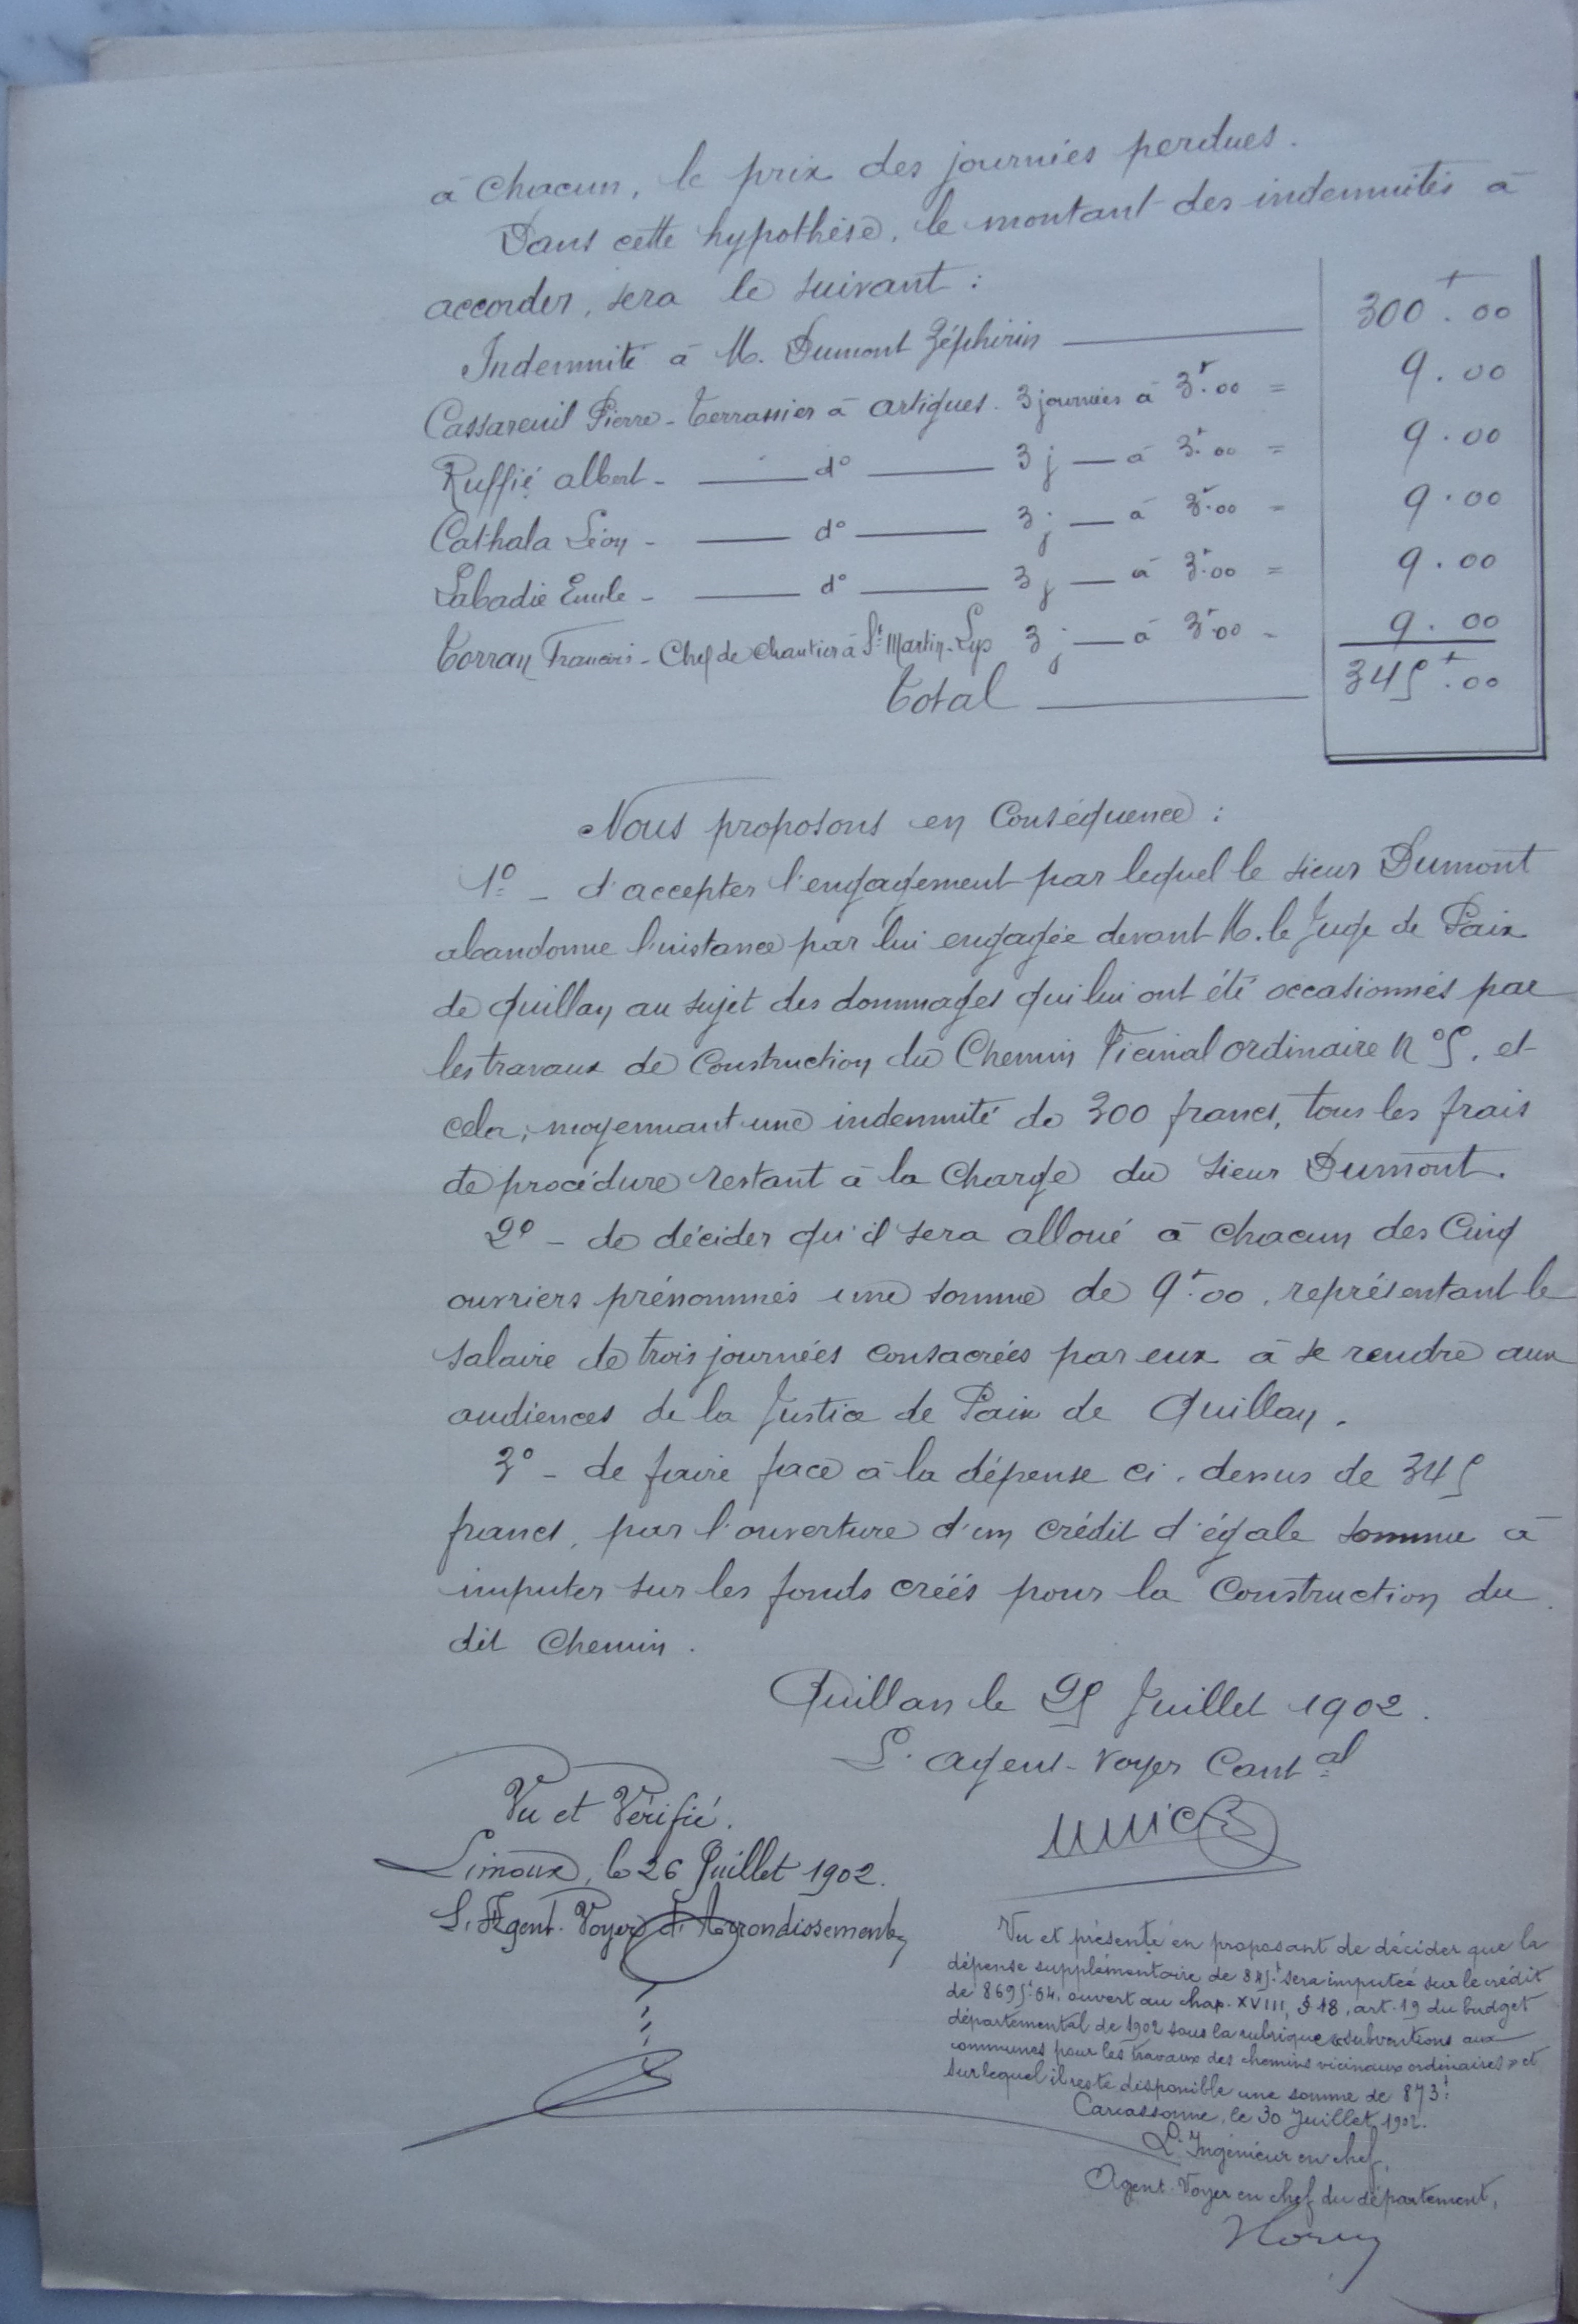 à chacun, le prix des journées perdues.
Dans cette hypothèse, le montant des indemnités à
accorder, sera le suivant :
Indemnité à M. Dumont Zéphirin 300f.00
Cassareuil Pierre - terrassier à Artigues. 3 journées à 3f.00 = 9.00
Ruffié Albert - d° 3 j à 3f.00 = 9.00
Cathala Léon - d° 3 j à 3f.00 = 9.00
Labadie Emile - d° 3 j à 3f.00 = 9.00
Torran Francois - Chef de chantier à St Martin-Lys 3 j à 3f00 = 9.00
Total 345f.00
Nous proposons en Conséquence :
1° - d'accepter l'engagement par lequel le sieur Dumont
abandonne l'instance par lui engagée devant M. le Juge de Paix
de Quillan au sujet des dommages qui lui ont été occasionnés par
les travaux de Construction du Chemin Vicinal ordinaire N° 5, et
cela, moyennant une indemnité de 300 francs, tous les frais
de procédure restant à la charge du sieur Dumont.
2° - de décider qu'il sera alloué à chacun des Cinq
ouvriers prénommés une somme de 9f.00, représentant le
salaire de trois journées consacrées par eux à se rendre aux
audiences de la Justice de Paix de Quillan.
3° - de faire face à la dépense ci-dessus de 345
francs, par l'ouverture d'un crédit d'égale somme à
imputer sur les fonds créés pour la Construction du
dit Chemin.
Quillan le 25 Juillet 1902.
L'agent-voyer Cantal
Vu et Vérifié.
Limoux, le 26 Juillet 1902.
L'Agent-Voyer d'Arrondissement,
Vu et présenté en proposant de décider que la
dépense supplémentaire de 345f sera imputée sur le crédit
de 8695f.04, ouvert au chap. XVIII, § 18, art. 19 du budget
départemental de 1902 sous la rubrique « Subventions aux
communes pour les travaux des chemins vicinaux ordinaires » et
sur lequel il reste disponible une somme de 873f.
Carcassonne, le 30 Juillet 1902.
L'Ingénieur en chef,
Agent-Voyer en chef du département,